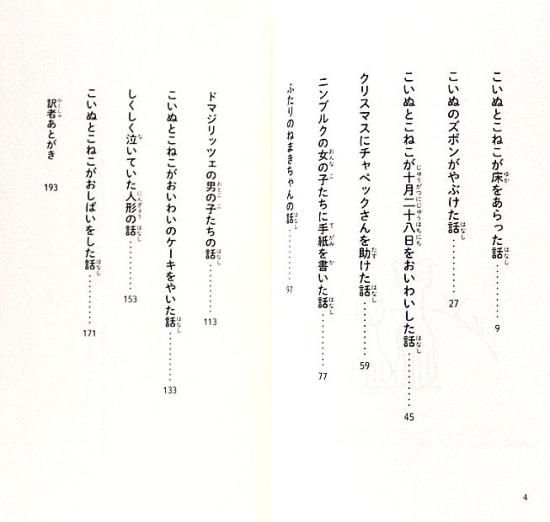 こいぬとこねこが床をあらった話・・・・・・・・・9
こいぬのズボンがやぶけた話・・・・・・・・・27
こいぬとこねこが十月二十八日をおいわいした話・・・・・・・・・45
クリスマスにチャペックさんを助けた話・・・・・・・・・59
ニンブルクの女の子たちに手紙を書いた話・・・・・・・・・77
ふたりのねまきちゃんの話・・・・・・・・・97
ドマジリッツェの男の子たちの話・・・・・・・・・113
こいぬとこねこがおいわいのケーキをやいた話・・・・・・・・・133
しくしく泣いていた人形の話・・・・・・・・・153
こいぬとこねこがおしばいをした話・・・・・・・・・171
訳者あとがき 193
4